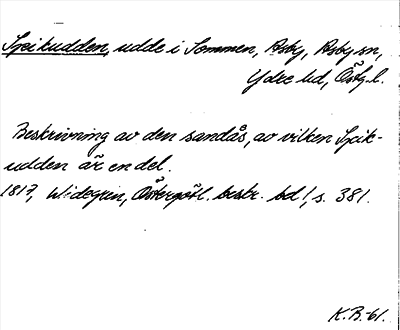 Spikudden, udde i Sommen, Asby, Asby sn,
Ydre hd, Östg.l.
Beskrivning av den sandås, av vilken Spik-
udden är en del.
1817, Widegren, Östergötl. beskr. bd 1, s. 381.
K.B-61.